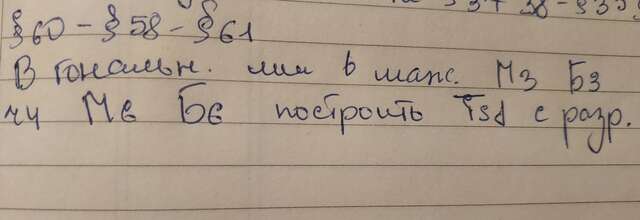 §60 – §58 – §61
В тональн. ми в макс. М3 Б3
ч4 М6 Б6 построить Tsd с разр.